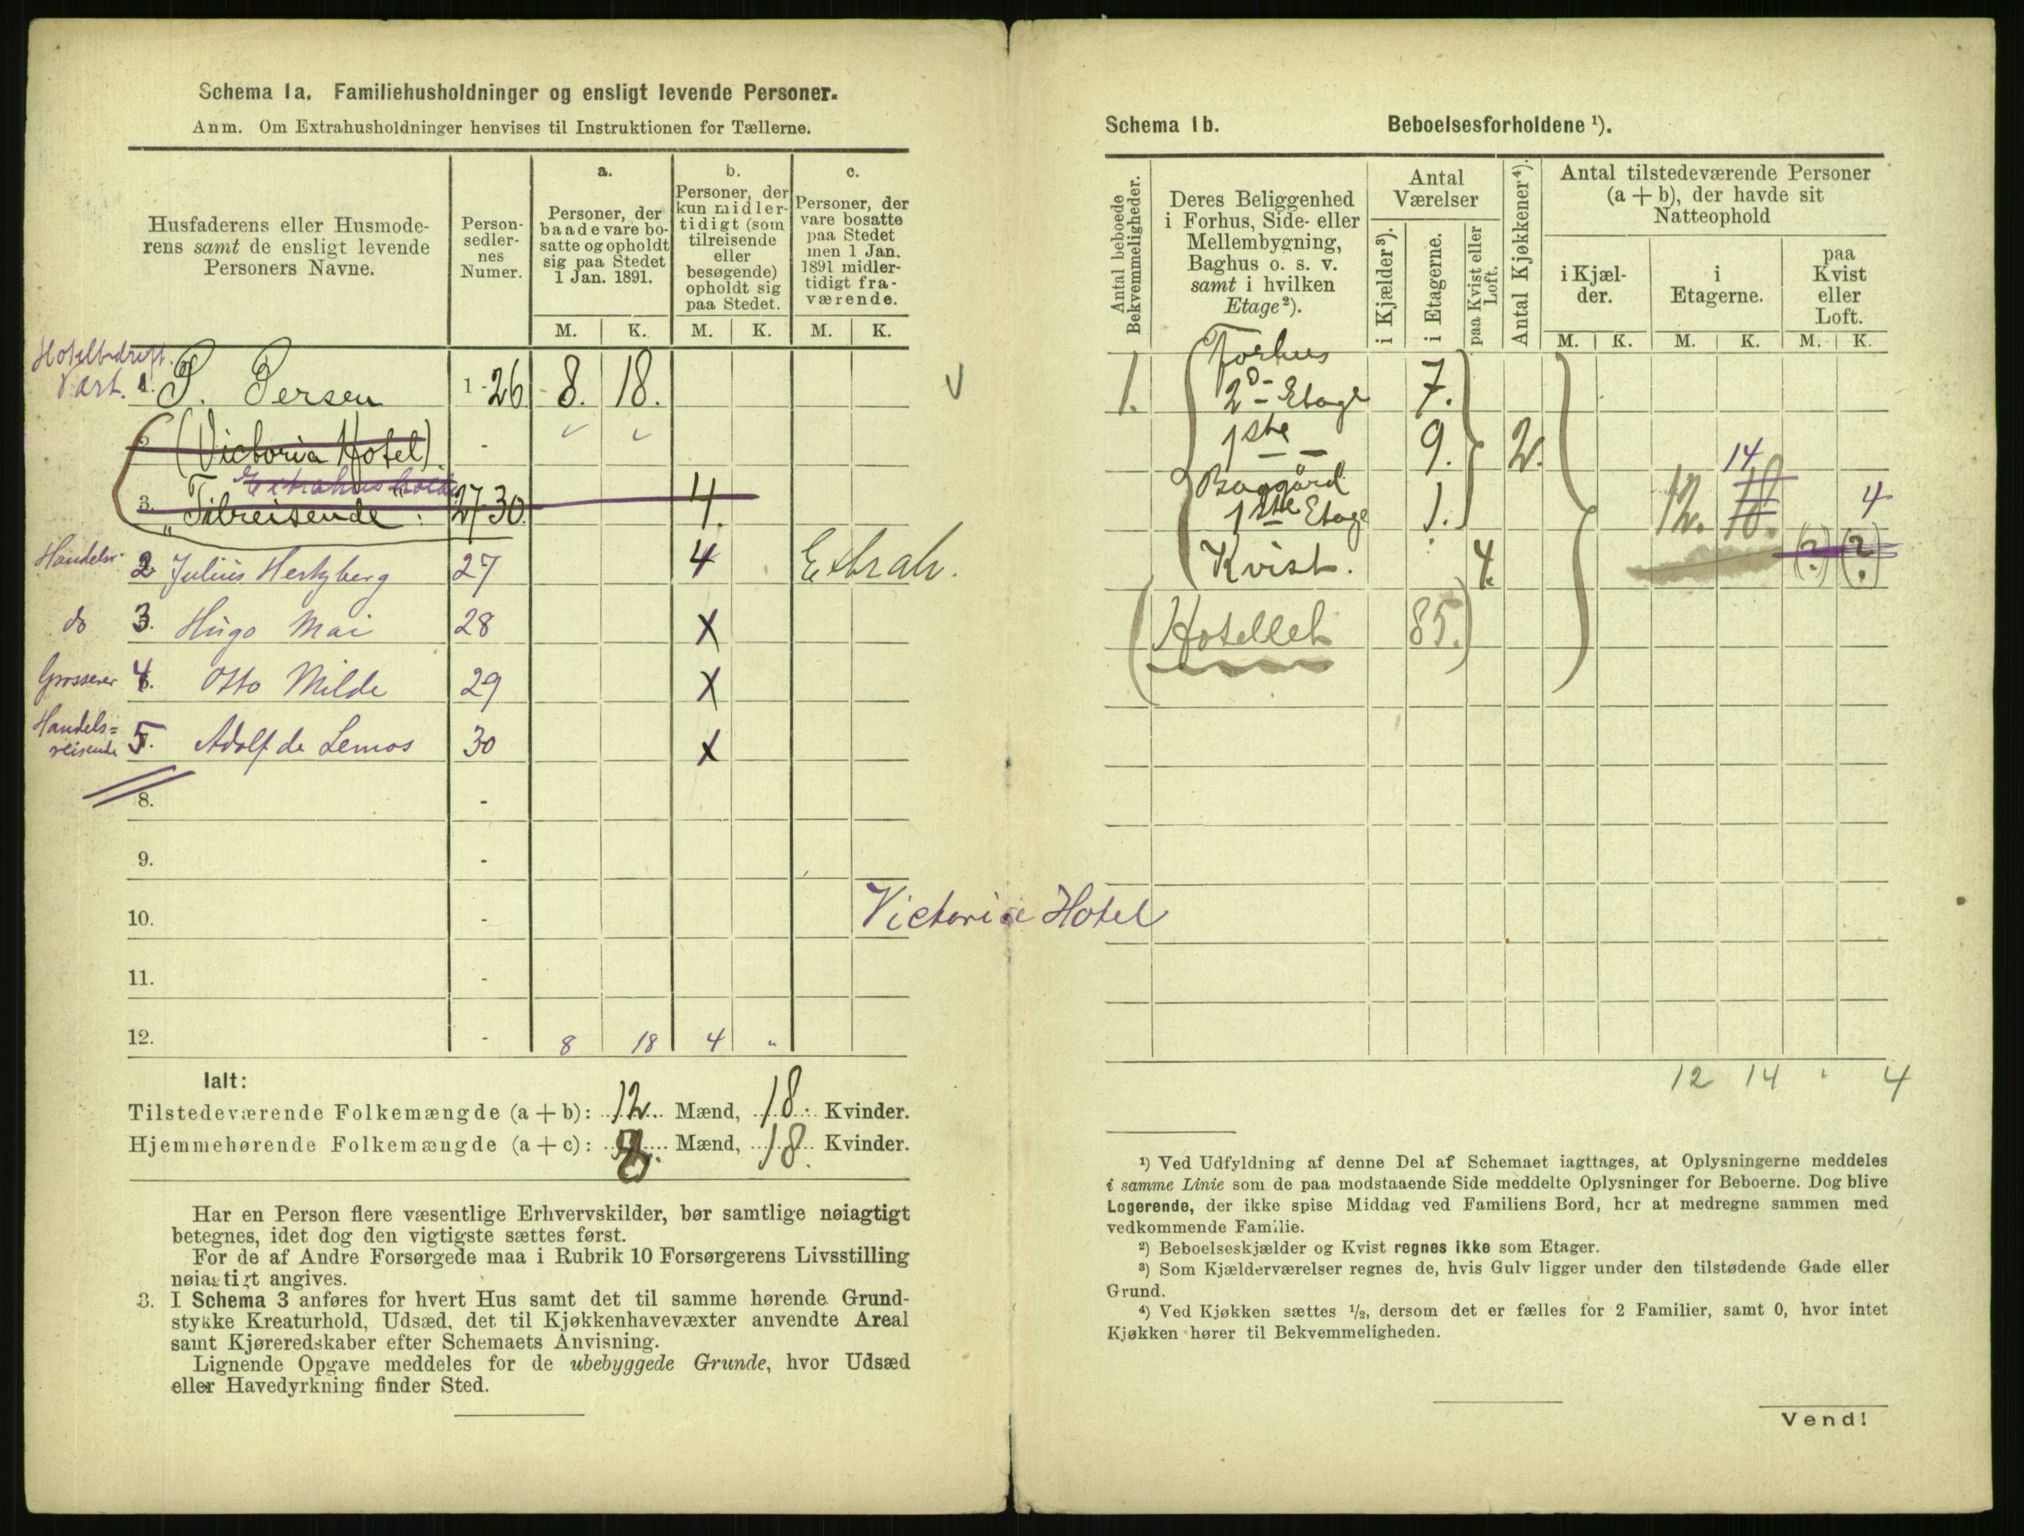 Schema 1a. Familiehusholdninger og ensligt levende Personer.
Anm. Om Extrahusholdninger henvises til Instruktionen for Tællerne.
Husfaderens eller Husmoderens samt de ensligt levende Personers Navne.
Personsedlernes Numer.
a.
Personer, der baade vare bosatte og opholdt sig paa Stedet 1 Jan. 1891.
b.
Personer, der kun midlertidigt (som tilreisende eller besøgende) opholdt sig paa Stedet.
c.
Personer, der vare bosatte paa Stedet men 1 Jan. 1891 midlertidigt fraværende.
M. K. M. K. M. K.
Hotelbedrift. Vært. 1. P. Persen 1-26 8. 18.
2. (Victoria Hotel) -
Extrahushold
3. "Tilreisende". 27-30 4.
Handelsr. 2 Julius Hertzberg 27 4 Extrah.
do 3. Hugo Mai 28 X
Grosserer 4. Otto Milde 29 X
Handels=
reisende 5. Adolf de Lemos 30 X
8. -
9. -
10. -
Victoria Hotel
11. -
12. - 8 18 4 "
Ialt:
Tilstedeværende Folkemængde (a + b): 12 Mænd, 18. Kvinder.
Hjemmehørende Folkemængde (a + c): 8. Mænd, 18. Kvinder.
Har en Person flere væsentlige Erhvervskilder, bør samtlige nøiagtigt
betegnes, idet dog den vigtigste sættes først.
For de af Andre Forsørgede maa i Rubrik 10 Forsørgerens Livsstilling
nøiagtigt angives.
3. I Schema 3 anføres for hvert Hus samt det til samme hørende Grund-
stykke Kreaturhold, Udsæd, det til Kjøkkenhavevæxter anvendte Areal
samt Kjøreredskaber efter Schemaets Anvisning.
Lignende Opgave meddeles for de ubebyggede Grunde, hvor Udsæd
eller Havedyrkning finder Sted.
Schema 1b. Beboelsesforholdene ¹).
Antal beboede Bekvemmeligheder.
Deres Beliggenhed i Forhus, Side- eller Mellembygning, Baghus o. s. v. samt i hvilken Etage²).
Antal Værelser
i Kjælder³).
i Etagerne.
paa Kvist eller Loft.
Antal Kjøkkener⁴).
Antal tilstedeværende Personer (a + b), der havde sit Natteophold
i Kjælder.
i Etagerne.
paa Kvist eller Loft.
M. K. M. K. M. K.
Forhus
1. 2den Etage 7.
1ste — 9. 2.
14
Baggård
1ste Etage 1. 12. 18. 4
Kvist. 4. (?) (?)
(Hotellet 85.)
12 14 " 4
¹) Ved Udfyldning af denne Del af Schemaet iagttages, at Oplysningerne meddeles
i samme Linie som de paa modstaaende Side meddelte Oplysninger for Beboerne. Dog blive
Logerende, der ikke spise Middag ved Familiens Bord, her at medregne sammen med
vedkommende Familie.
²) Beboelseskjælder og Kvist regnes ikke som Etager.
³) Som Kjælderværelser regnes de, hvis Gulv ligger under den tilstødende Gade eller
Grund.
⁴) Ved Kjøkken sættes ½, dersom det er fælles for 2 Familier, samt 0, hvor intet
Kjøkken hører til Bekvemmeligheden.
Vend!